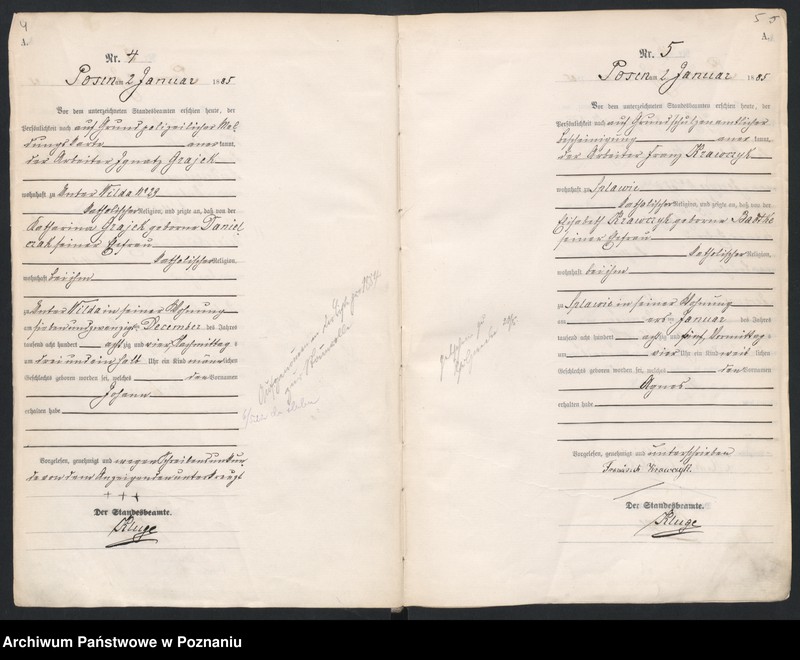 4
A.
Nr. 4
Posen am 2 Januar 1885
Vor dem unterzeichneten Standesbeamten erschien heute, der
Persönlichkeit nach auf Grund polizeilicher Mel-
dungskarte anerkannt,
der Arbeiter Ignatz Grajek
wohnhaft zu Unter Wilda No 29
katholischer Religion, und zeigte an, daß von der
Katharina Grajek geborne Daniel-
czak seiner Ehefrau
katholischer Religion,
wohnhaft bei ihm
zu Unter Wilda in seiner Wohnung
am sieben und zwanzigst. December des Jahres
tausend acht hundert achtzig und vier Nachmittags
um drei und ein halb Uhr ein Kind männlichen
Geschlechts geboren worden sei, welches den Vornamen
Johann
erhalten habe
Vorgelesen, genehmigt und wegen Schreibensunkun-
de von dem Anzeigenden unterkreuzt
+++
Der Standesbeamte.
Kluge
5 5
A.
Nr. 5
Posen am 2 Januar 1885
Vor dem unterzeichneten Standesbeamten erschien heute, der
Persönlichkeit nach auf Grund schulzenamtlicher
Bescheinigung anerkannt,
der Arbeiter Franz Krawczyk
wohnhaft zu Splawie
katholischer Religion, und zeigte an, daß von der
Elisabeth Krawczyk geborne Badtke
seiner Ehefrau
katholischer Religion,
wohnhaft bei ihm
zu Splawie in seiner Wohnung
am erst. Januar des Jahres
tausend acht hundert achtzig und fünf Vormittags
um vier Uhr ein Kind weiblichen
Geschlechts geboren worden sei, welches den Vornamen
Agnes
erhalten habe
Vorgelesen, genehmigt und unterschrieben
Krawczyk
Der Standesbeamte.
Kluge
Archiwum Państwowe w Poznaniu